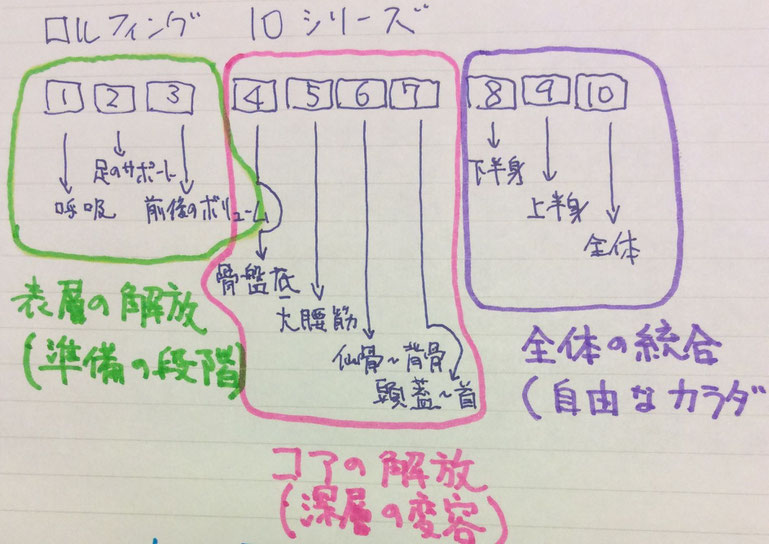 ロルフィング 10シリーズ
1 2 3 4 5 6 7 8 9 10
足のサポート
呼吸
前後のボリューム
骨盤底
大腰筋
仙骨~背骨
頭蓋~首
下半身
上半身
全体
表層の解放
(準備の段階)
コアの解放
(深層の変容)
全体の統合
(自由なカラダ